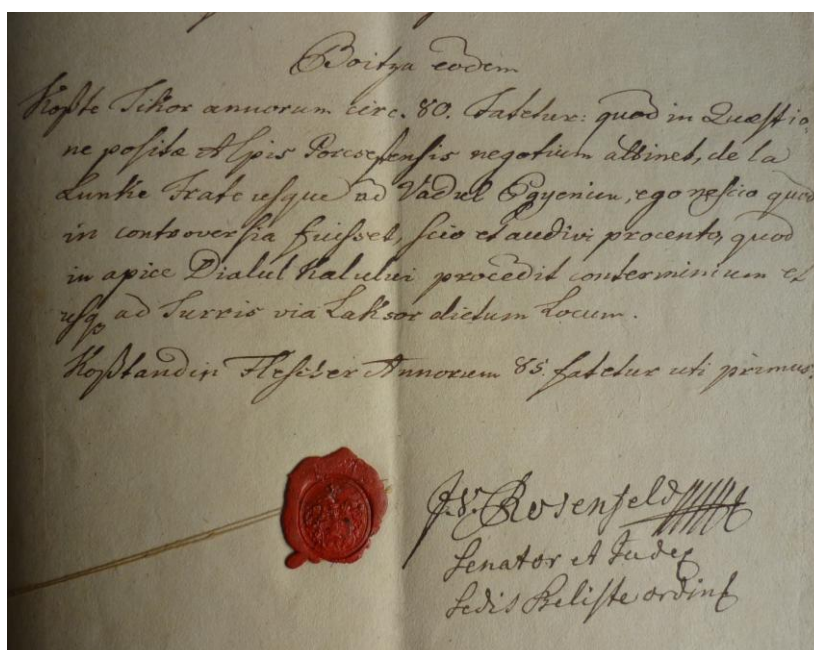 Boitza eodem
Koßte Sikor annorum circ. 80. fatetur: quod in Quæstio-
ne positæ Alpis Porcsesensis negotium attinet, de la
Lunke Frate usque ad Vadul Egyeniuu, ego nescio quod
in controversia fuisset, scio et audivi procento, quod
in apice Dialul Kalului procedit conterminium et
usq ad Turris via Laksor dictum Locum.
Koßtandin Flesser Annorum 85. fatetur uti primus.
J. V. Rosenfeld
Senator et Judex
Sedis Seliste ordin